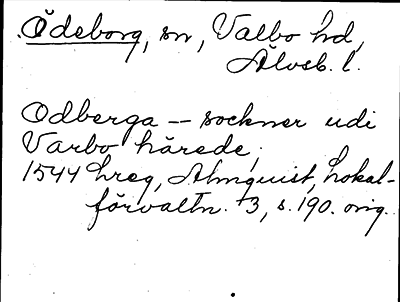 Ödeborg, sn, Valbo hd,
Älvsb. l.
Odberga — sockner udi
Varbo härede,
1544 hreg, Almquist, Lokal-
förvaltn. 3, s. 190. orig.